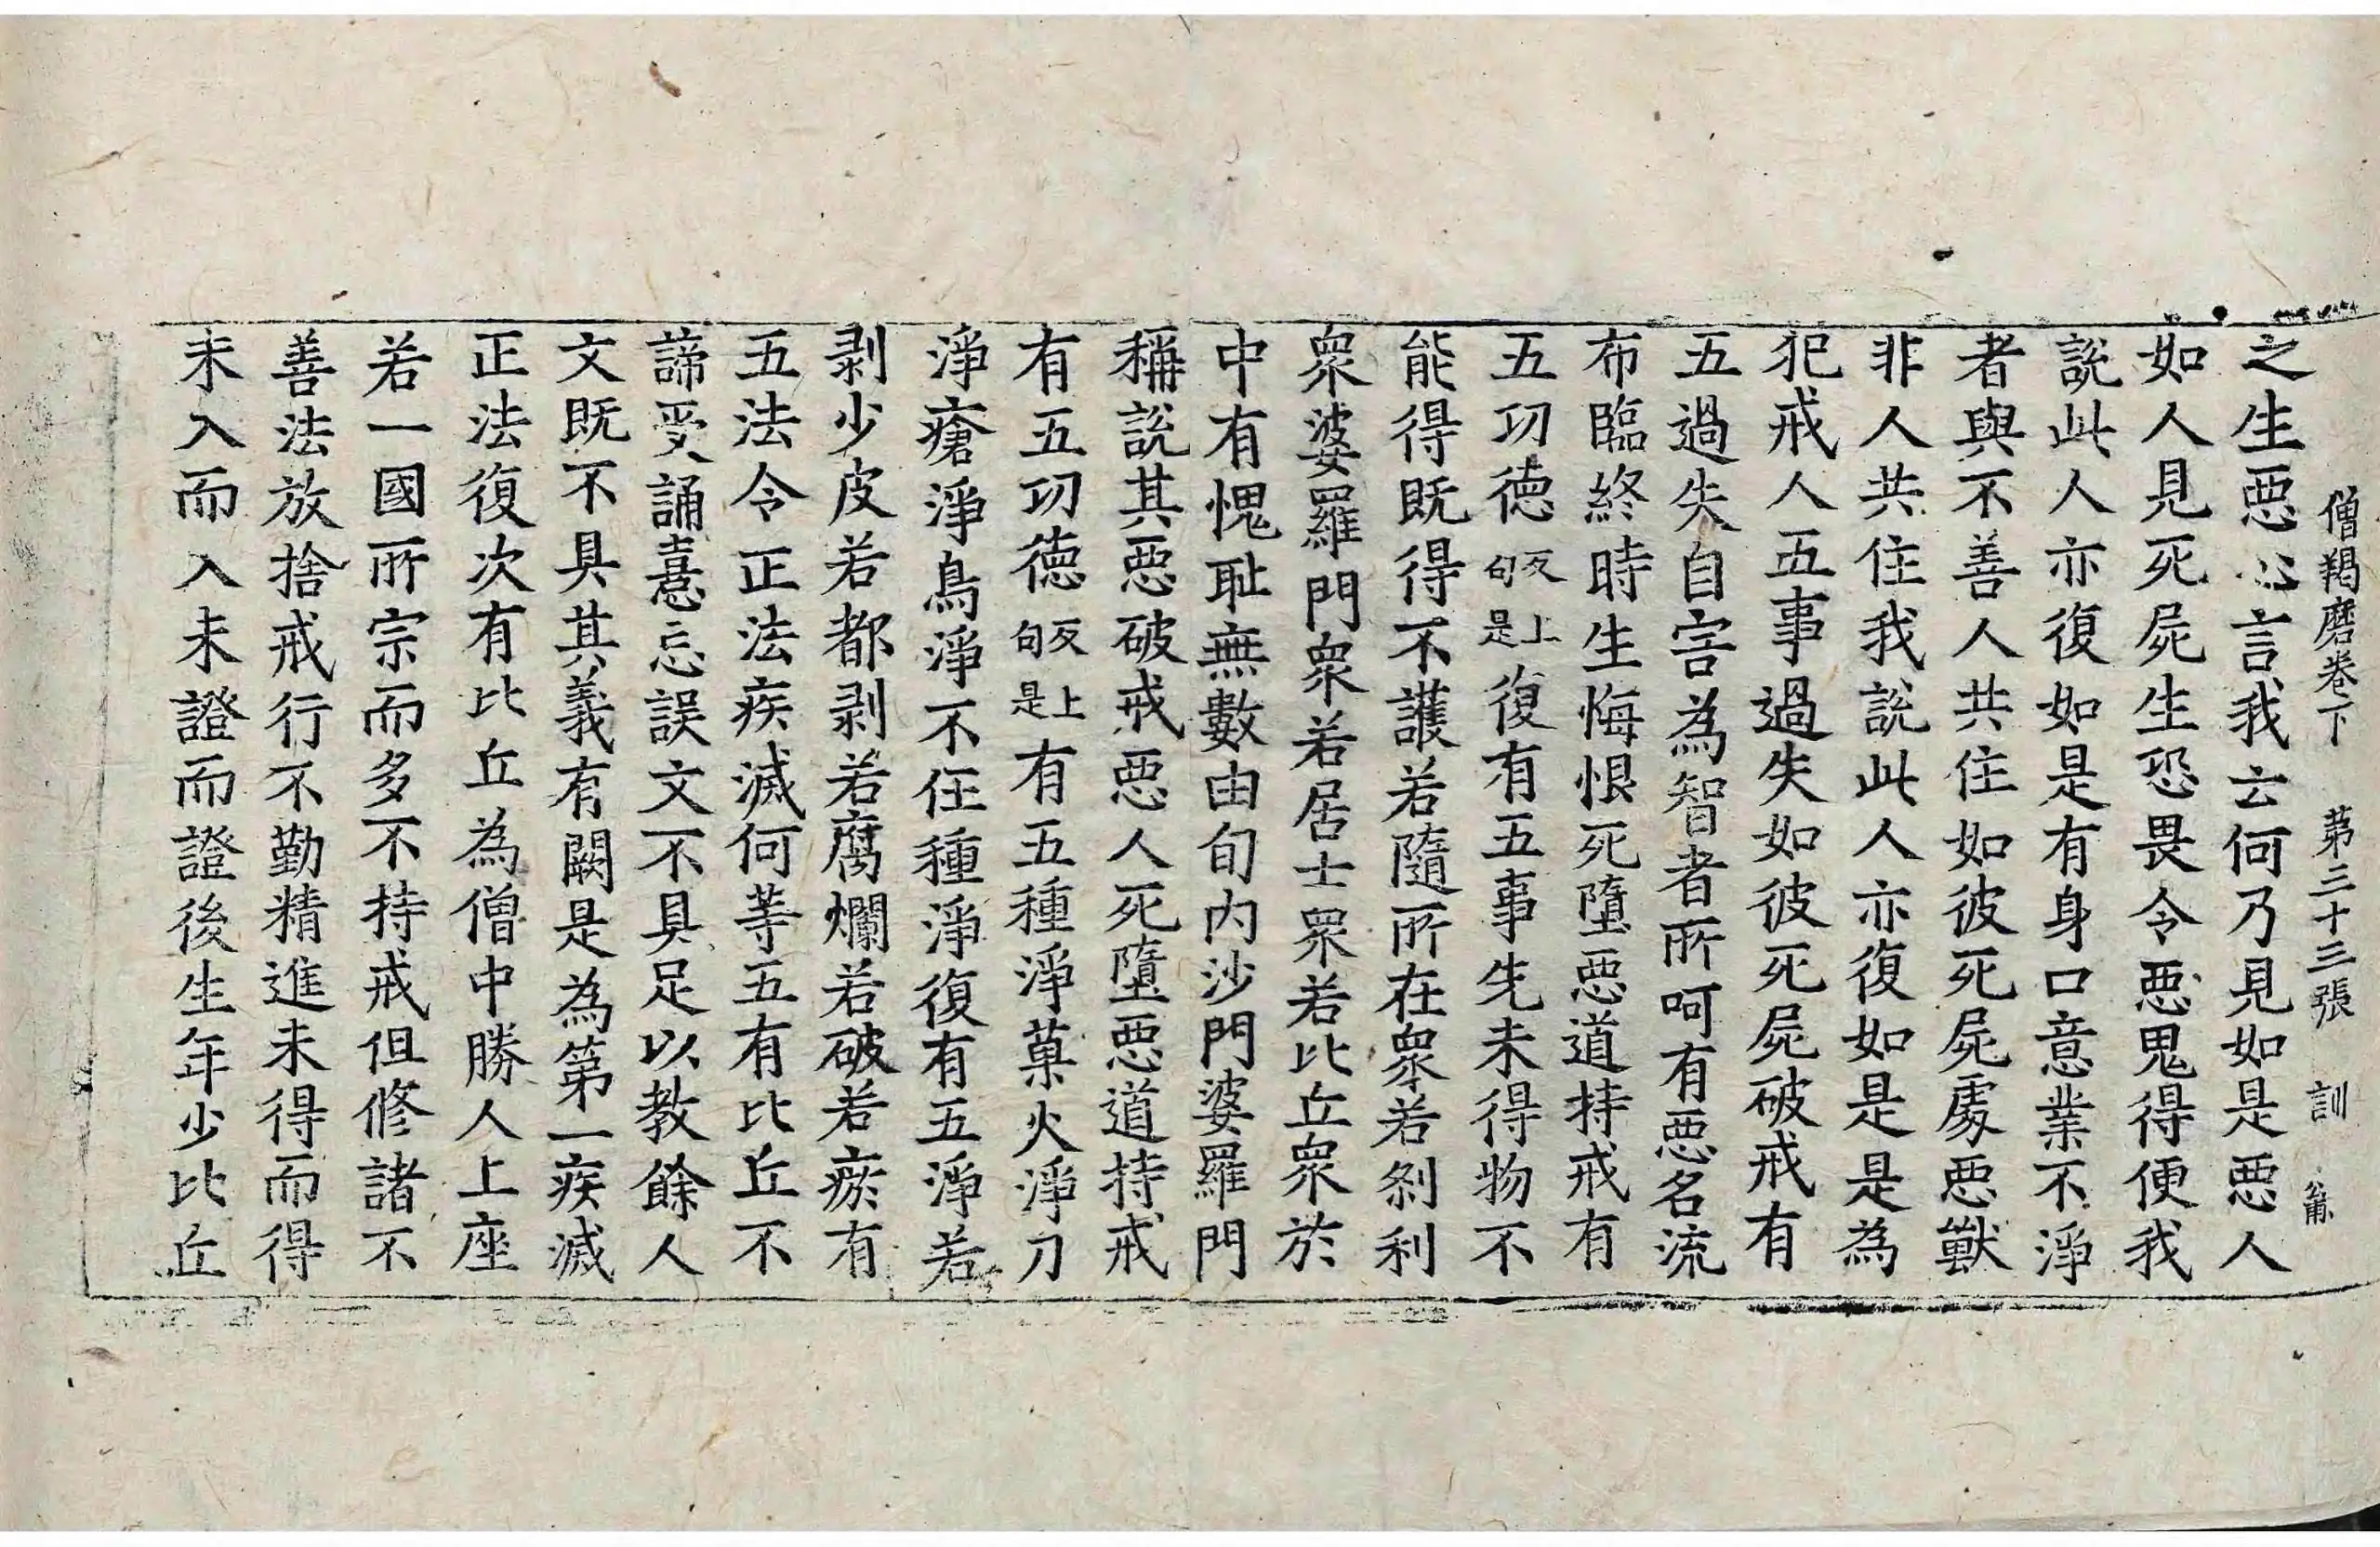 僧羯磨卷下 第三十三張 訓
之生惡心言我云何乃見如是惡人
如人見死屍生恐畏令惡鬼得便我
說此人亦復如是有身口意業不淨
者與不善人共住如彼死屍處惡獸
非人共住我說此人亦復如是是為
犯戒人五事過失如彼死屍破戒有
五過失自害為智者所呵有惡名流
布臨終時生悔恨死墮惡道持戒有
五功德反上句是復有五事先未得物不
能得既得不護若隨所在眾若剎利
眾婆羅門眾若居士眾若比丘眾於
中有愧恥無數由旬內沙門婆羅門
稱說其惡破戒惡人死墮惡道持戒
有五功德反上句是有五種淨菓火淨刀
淨瘡淨鳥淨不任種淨復有五淨若
剥少皮若都剥若腐爛若破若瘀有
五法令正法疾滅何等五有比丘不
諦受誦憙忘誤文不具足以教餘人
文既不具其義有闕是為第一疾滅
正法復次有比丘為僧中勝人上座
若一國所宗而多不持戒但修諸不
善法放捨戒行不勤精進未得而得
未入而入未證而證後生年少比丘